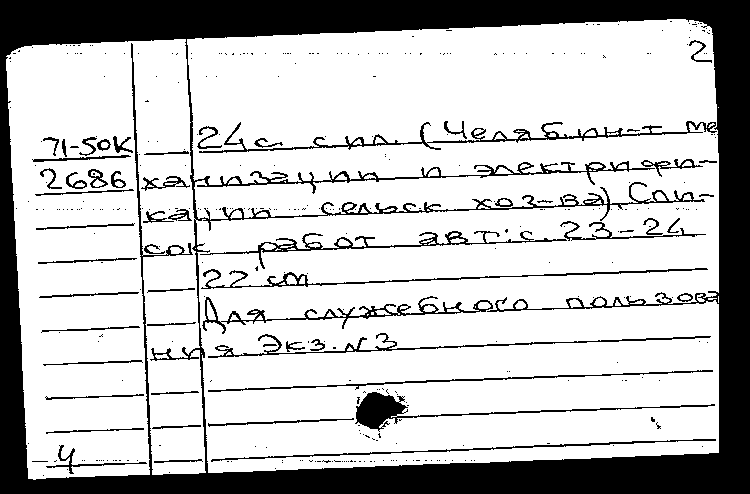 2
71-50к 24с. с ил. (Челяб.ин-т ме
2686 ханизации и электрифи-
кации сельск хоз-ва). Спи-
сок работ авт.: с. 23-24
22 см
Для служебного пользова
ния. Экз. N3
4